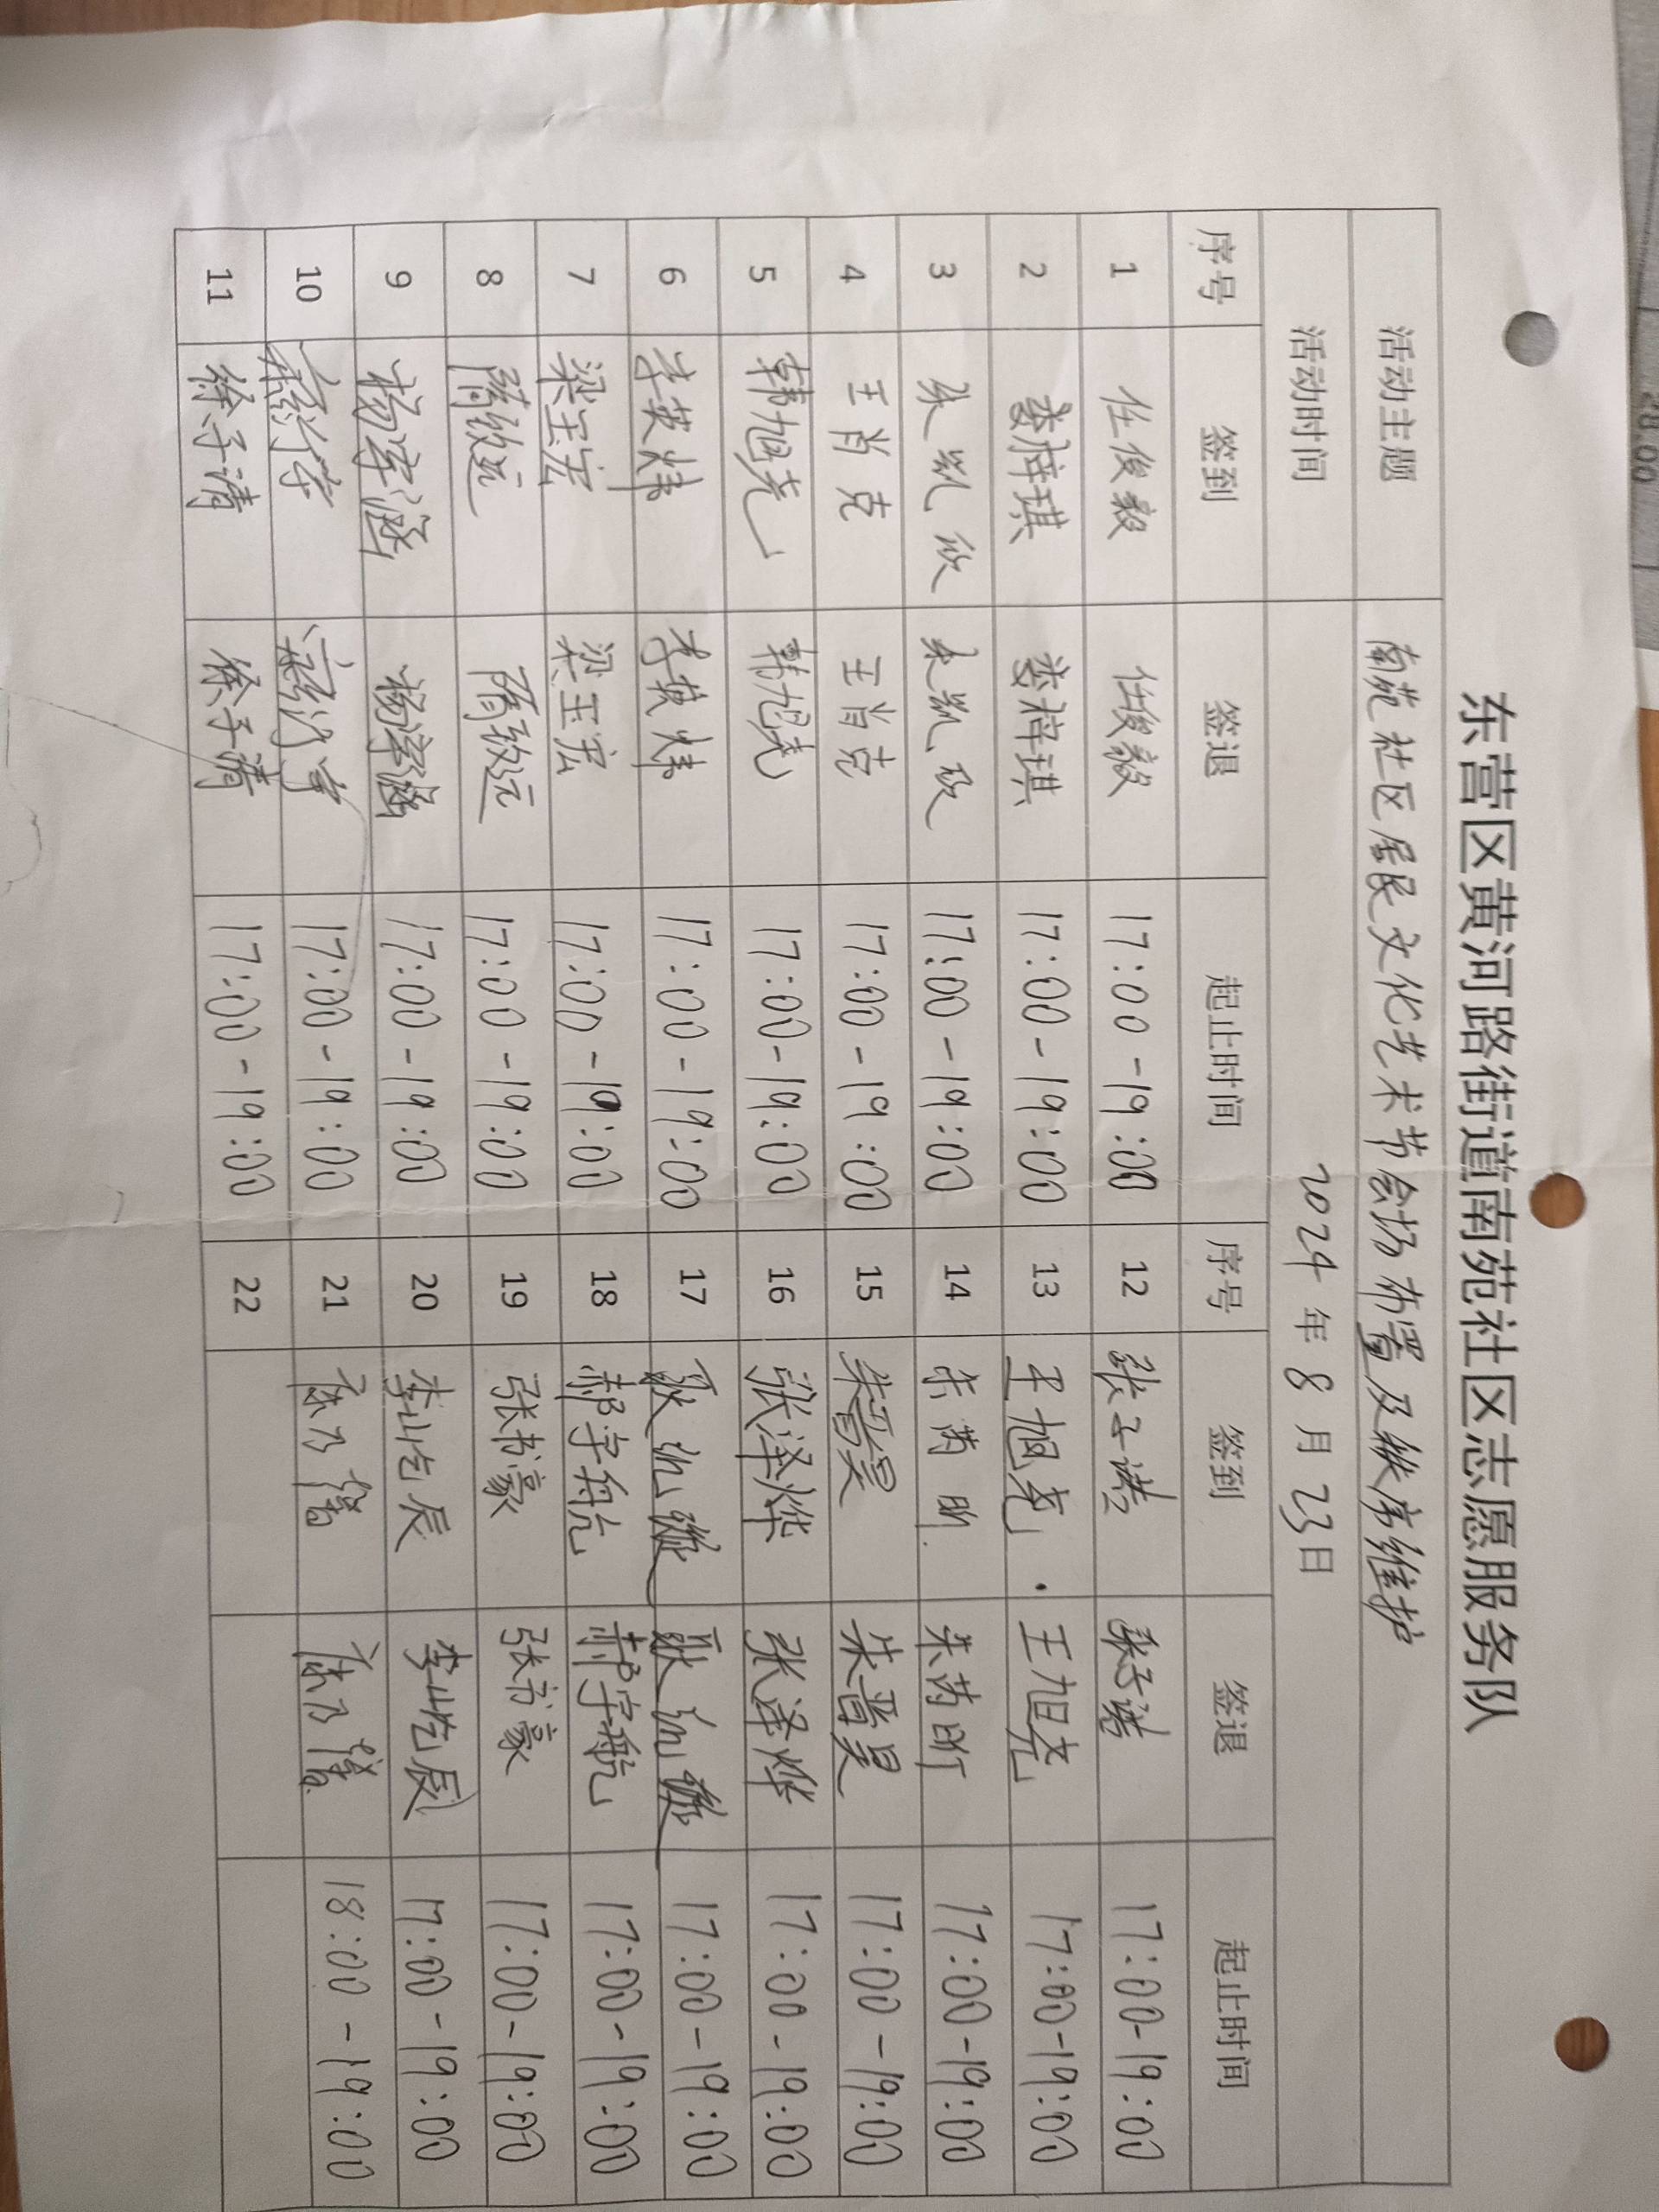 东营区黄河路街道南苑社区志愿服务队
活动主题 南苑社区居民文化艺术节会场布置及秩序维护
活动时间 2024年8月23日
序号 签到 签退 起止时间 序号 签到 签退 起止时间
1 任俊毅 任俊毅 17:00-19:00 12 张子诺 张子诺 17:00-19:00
2 娄梓琪 娄梓琪 17:00-19:00 13 王旭尧 王旭尧 17:00-19:00
3 17:00-19:00 14 17:00-19:00
4 王肖克 王肖克 17:00-19:00 15 朱晋昊 朱晋昊 17:00-19:00
5 韩旭尧 韩旭尧 17:00-19:00 16 张泽烨 张泽烨 17:00-19:00
6 李英炜 李英炜 17:00-19:00 17 17:00-19:00
7 梁玉宏 梁玉宏 17:00-19:00 18 郝宇航 郝宇航 17:00-19:00
8 隋致远 隋致远 17:00-19:00 19 张书豪 张书豪 17:00-19:00
9 杨宇涵 杨宇涵 17:00-19:00 20 李屹辰 李屹辰 17:00-19:00
10 17:00-19:00 21 18:00-19:00
11 徐子清 徐子清 17:00-19:00 22
28.00